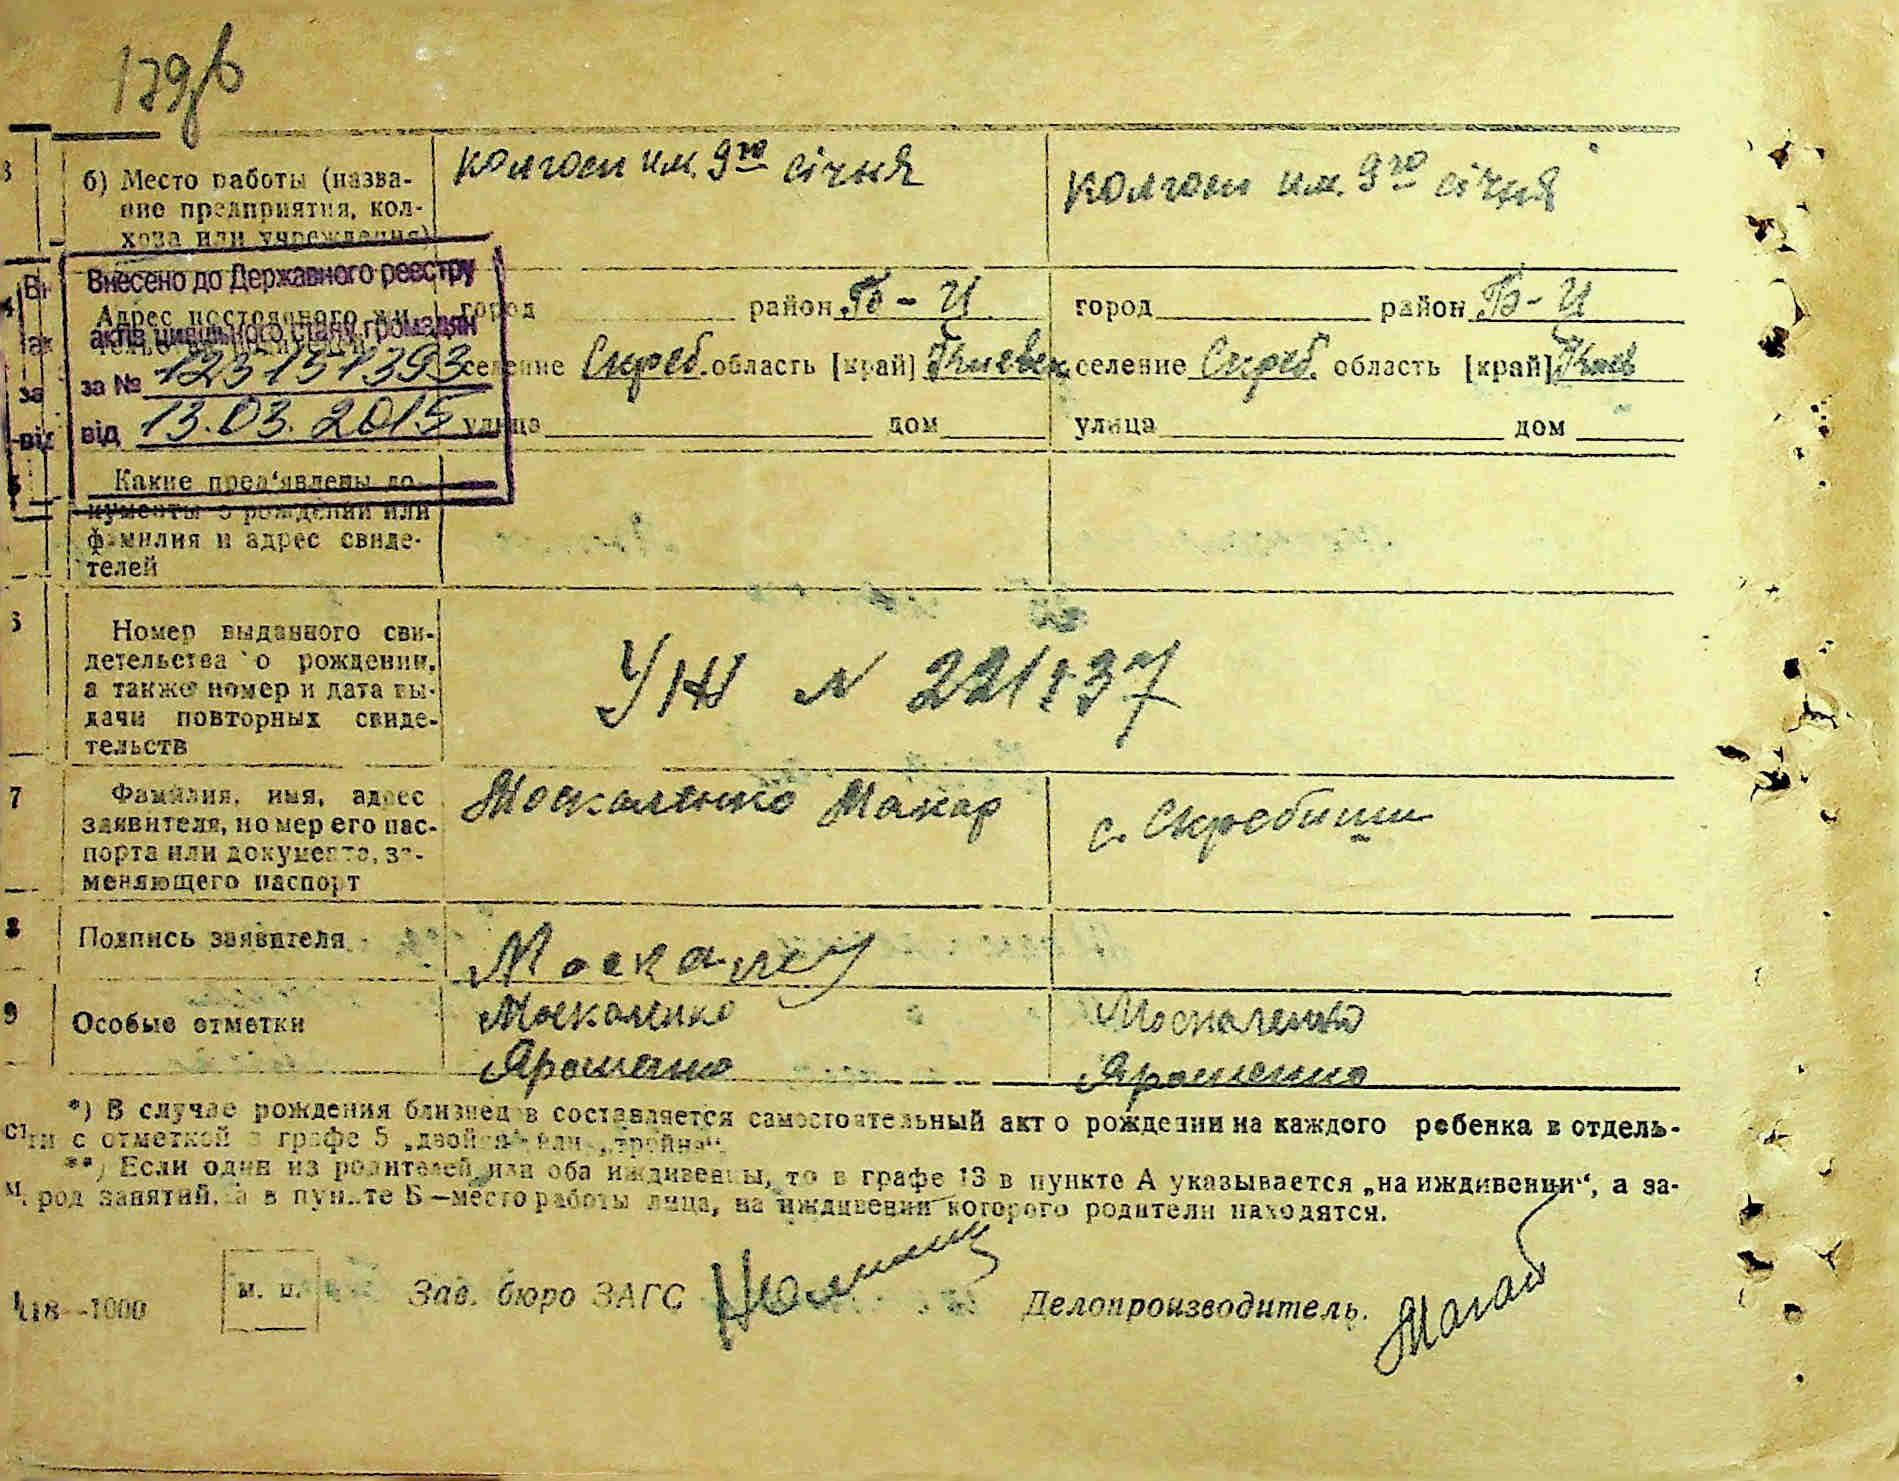 б) Место работы (назва-
ние предприятия, кол-
хоза или учреждения)
колгосп им. 9го січня
колгосп им. 9го січня
Внесено до Державного реєстру
актів цивільного стану громадян
за №
від 13.03.2015
Адрес постоянного жи-
город район Б-Ц
город район Б-Ц
селение Скреб. область [край] Киевск
селение Скреб. область [край] Киев
улица дом
улица дом
Какие пред'явлены до-
кументы о рождении или
фамилия и адрес свиде-
телей
6
Номер выданного сви-
детельства о рождении,
а также номер и дата вы-
дачи повторных свиде-
тельств
УЖ N
7
Фамилия, имя, адрес
заявителя, номер его пас-
порта или документа, за-
меняющего паспорт
Москаленко Макар
с. Скребиши
8
Подпись заявителя
9
Особые отметки
Москаленко
Ярошенко
Москаленко
Ярошенко
*) В случае рождения близнецов составляется самостоятельный акт о рождении на каждого ребенка в отдель-
сти с отметкой в графе 5 „двойня“ или „тройня“.
**) Если один из родителей или оба иждивенцы, то в графе 13 в пункте А указывается „на иждивении“, а за-
род занятий, а в пункте Б—место работы лица, на иждивении которого родители находятся.
м. п. Зав. бюро ЗАГС
Делопроизводитель.
118—1000